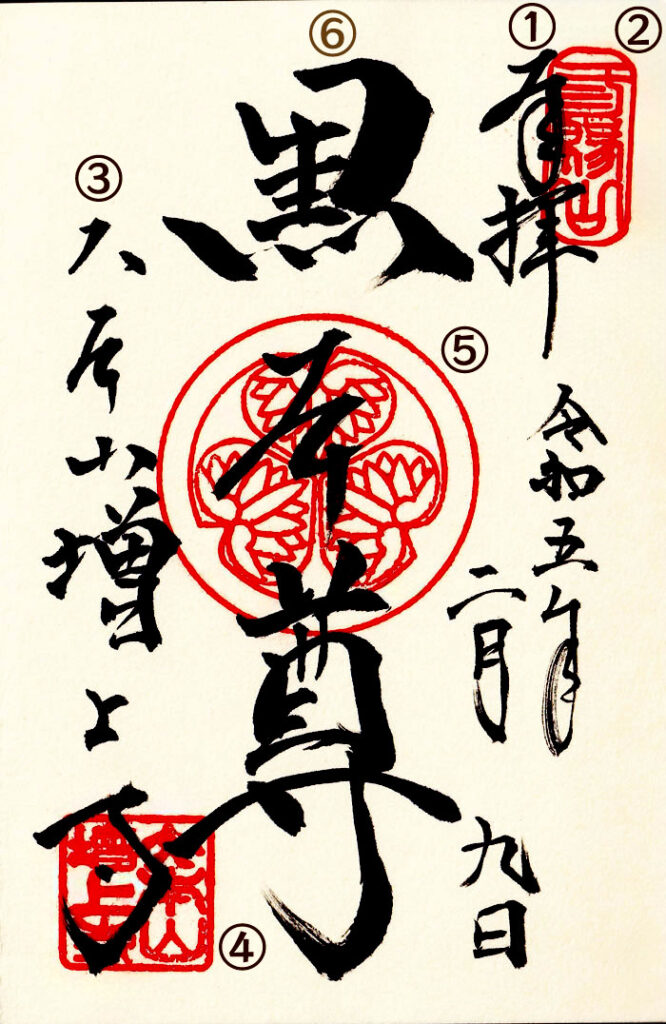 ②
三縁山
①
奉拝
令和五年
二月
九日
⑥
黒本尊
⑤
③
大本山増上寺
④
大本山
増上寺